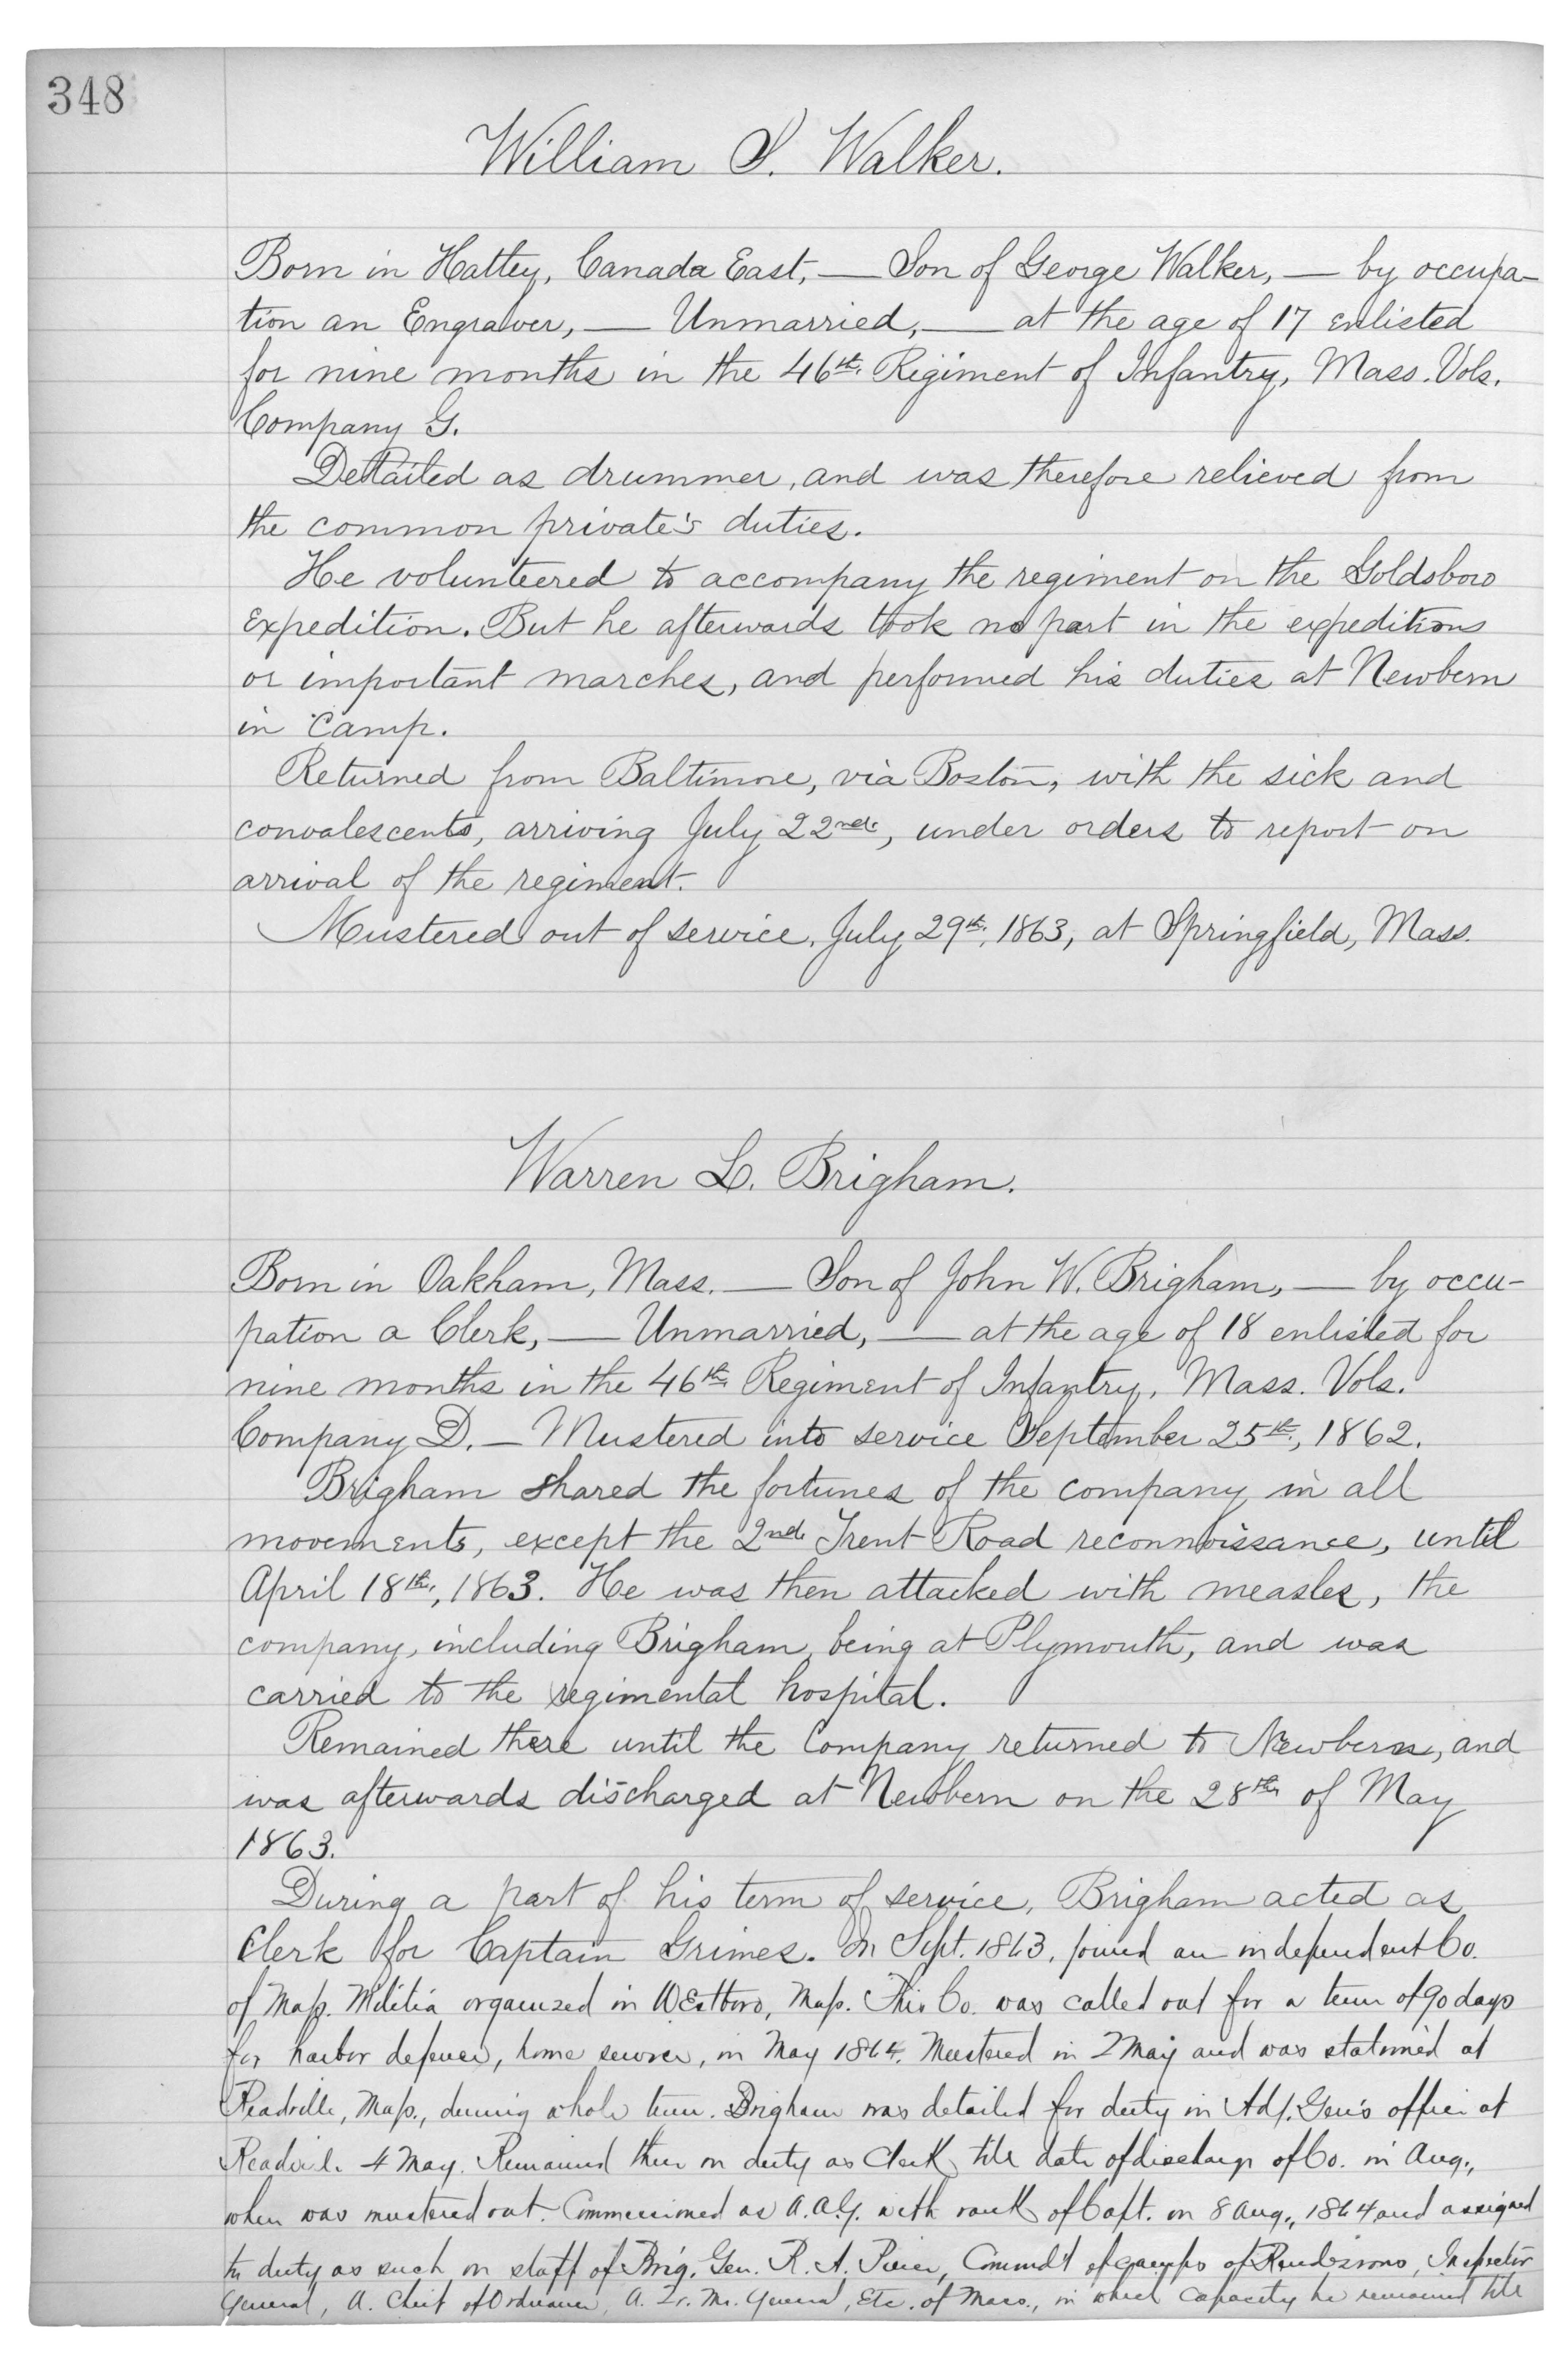 348
William S. Walker.
Born in Hatley, Canada East, — Son of George Walker, — by occupa-
tion an Engraver, — Unmarried, — at the age of 17 enlisted
for nine months in the 46th. Regiment of Infantry, Mass. Vols.
Company G.
Detailed as drummer, and was therefore relieved from
the common private's duties.
He volunteered to accompany the regiment on the Goldsboro
expedition. But he afterwards took no part in the expeditions
or important marches, and performed his duties at Newbern
in Camp.
Returned from Baltimore, via Boston, with the sick and
convalescents, arriving July 22nd., under orders to report on
arrival of the regiment.
Mustered out of service, July 29th. 1863, at Springfield, Mass.
Warren L. Brigham.
Born in Oakham, Mass. — Son of John W. Brigham, — by occu-
pation a Clerk, — Unmarried, — at the age of 18 enlisted for
nine months in the 46th. Regiment of Infantry, Mass. Vols.
Company D. — Mustered into service September 25th., 1862.
Brigham shared the fortunes of the company in all
movements, except the 2nd. Trent Road reconnoissance, until
April 18th., 1863. He was then attacked with measles, the
company, including Brigham, being at Plymouth, and was
carried to the regimental hospital.
Remained there until the Company returned to Newbern, and
was afterwards discharged at Newbern on the 28th of May
1863.
During a part of his term of service, Brigham acted as
Clerk for Captain Grimes. In Sept. 1863, joined an independent Co.
of Mass. Militia organized in Westboro, Mass. This Co. was called out for a term of 90 days
for harbor defence, home service, in May 1864. Mustered in 2 May and was stationed at
Readville, Mass., during whole term. Brigham was detailed for duty in Adj. Gen's office at
Readville 4 May. Remained there on duty as Clerk till date of discharge of Co. in Aug.,
when was mustered out. Commissioned as A.A.G. with rank of Capt. on 8 Aug., 1864 and assigned
to duty as such on staff of Brig. Gen. R. A. Peirce, Commdt of Camps of Rendezvous, Inspector
General, A. Chief of Ordnance, A. Qr. Mr. General, Etc. of Mass., in which capacity he remained till